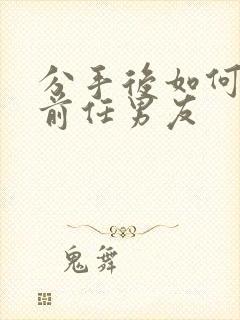 分手後如何
前任男友
鬼舞